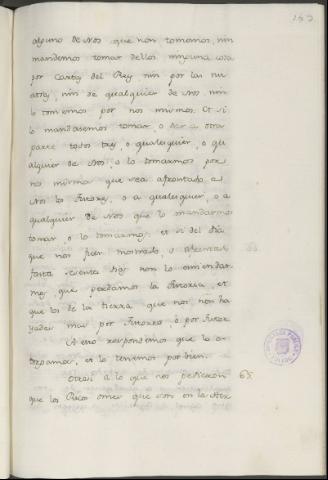 163
alguno de Nos que non tomemos, nin
mandemos tomar dellos ninguna cosa
por Cartas del Rey nin por las nu
estras, nin de qualquier de Nos, nin
lo tomemos por nos mismos. Et si
lo mandasemos tomar, o dar a otra
parte todos tres, o qualesquier, o qu
alquier de Nos, o lo tomarmos por
nos mismos que sea afrontado a
Nos los Tutores, o a qualesquier, o a
qualquier de Nos que lo mandarmos
tomar o lo tomarmos: et si del dia
que nos fuer mostrado, o
fasta treinta dias non lo emendar
mos, que perdamos la Tutoria, et
que los de la tierra que nos non ha
yades mas por Tutores, o por Tutor
A esto respondemos que lo o-
torgamos, et lo tenemos por bien.
Otrosi a lo que nos pidieron 65.
que los Ricos omes que son en la